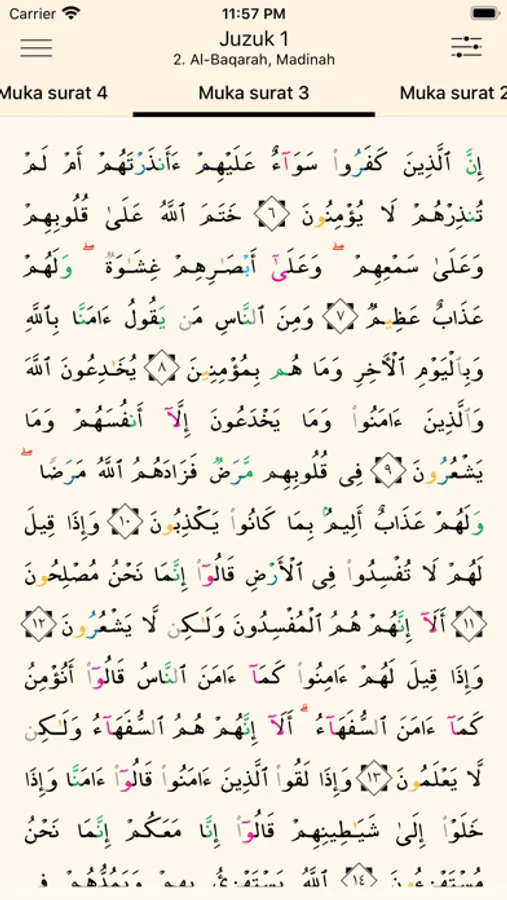 Carrier 11:57 PM
Juzuk 1
2. Al-Baqarah, Madinah
Muka surat 4 Muka surat 3 Muka surat 2
إِنَّ ٱلَّذِينَ كَفَرُوا۟ سَوَآءٌ عَلَيْهِمْ ءَأَنذَرْتَهُمْ أَمْ لَمْ
تُنذِرْهُمْ لَا يُؤْمِنُونَ ٦ خَتَمَ ٱللَّهُ عَلَىٰ قُلُوبِهِمْ
وَعَلَىٰ سَمْعِهِمْ ۖ وَعَلَىٰٓ أَبْصَـٰرِهِمْ غِشَـٰوَةٌ ۖ وَلَهُمْ
عَذَابٌ عَظِيمٌ ٧ وَمِنَ ٱلنَّاسِ مَن يَقُولُ ءَامَنَّا بِٱللَّهِ
وَبِٱلْيَوْمِ ٱلْـَٔاخِرِ وَمَا هُم بِمُؤْمِنِينَ ٨ يُخَـٰدِعُونَ ٱللَّهَ
وَٱلَّذِينَ ءَامَنُوا۟ وَمَا يَخْدَعُونَ إِلَّآ أَنفُسَهُمْ وَمَا
يَشْعُرُونَ ٩ فِى قُلُوبِهِم مَّرَضٌ فَزَادَهُمُ ٱللَّهُ مَرَضًا ۖ
وَلَهُمْ عَذَابٌ أَلِيمٌۢ بِمَا كَانُوا۟ يَكْذِبُونَ ١٠ وَإِذَا قِيلَ
لَهُمْ لَا تُفْسِدُوا۟ فِى ٱلْأَرْضِ قَالُوٓا۟ إِنَّمَا نَحْنُ مُصْلِحُونَ
١١ أَلَآ إِنَّهُمْ هُمُ ٱلْمُفْسِدُونَ وَلَـٰكِن لَّا يَشْعُرُونَ ١٢
وَإِذَا قِيلَ لَهُمْ ءَامِنُوا۟ كَمَآ ءَامَنَ ٱلنَّاسُ قَالُوٓا۟ أَنُؤْمِنُ
كَمَآ ءَامَنَ ٱلسُّفَهَآءُ ۗ أَلَآ إِنَّهُمْ هُمُ ٱلسُّفَهَآءُ وَلَـٰكِن
لَّا يَعْلَمُونَ ١٣ وَإِذَا لَقُوا۟ ٱلَّذِينَ ءَامَنُوا۟ قَالُوٓا۟ ءَامَنَّا وَإِذَا
خَلَوْا۟ إِلَىٰ شَيَـٰطِينِهِمْ قَالُوٓا۟ إِنَّا مَعَكُمْ إِنَّمَا نَحْنُ
مُسْتَهْزِءُونَ ١٤ ٱللَّهُ يَسْتَهْزِئُ بِهِمْ وَيَمُدُّهُمْ فِى